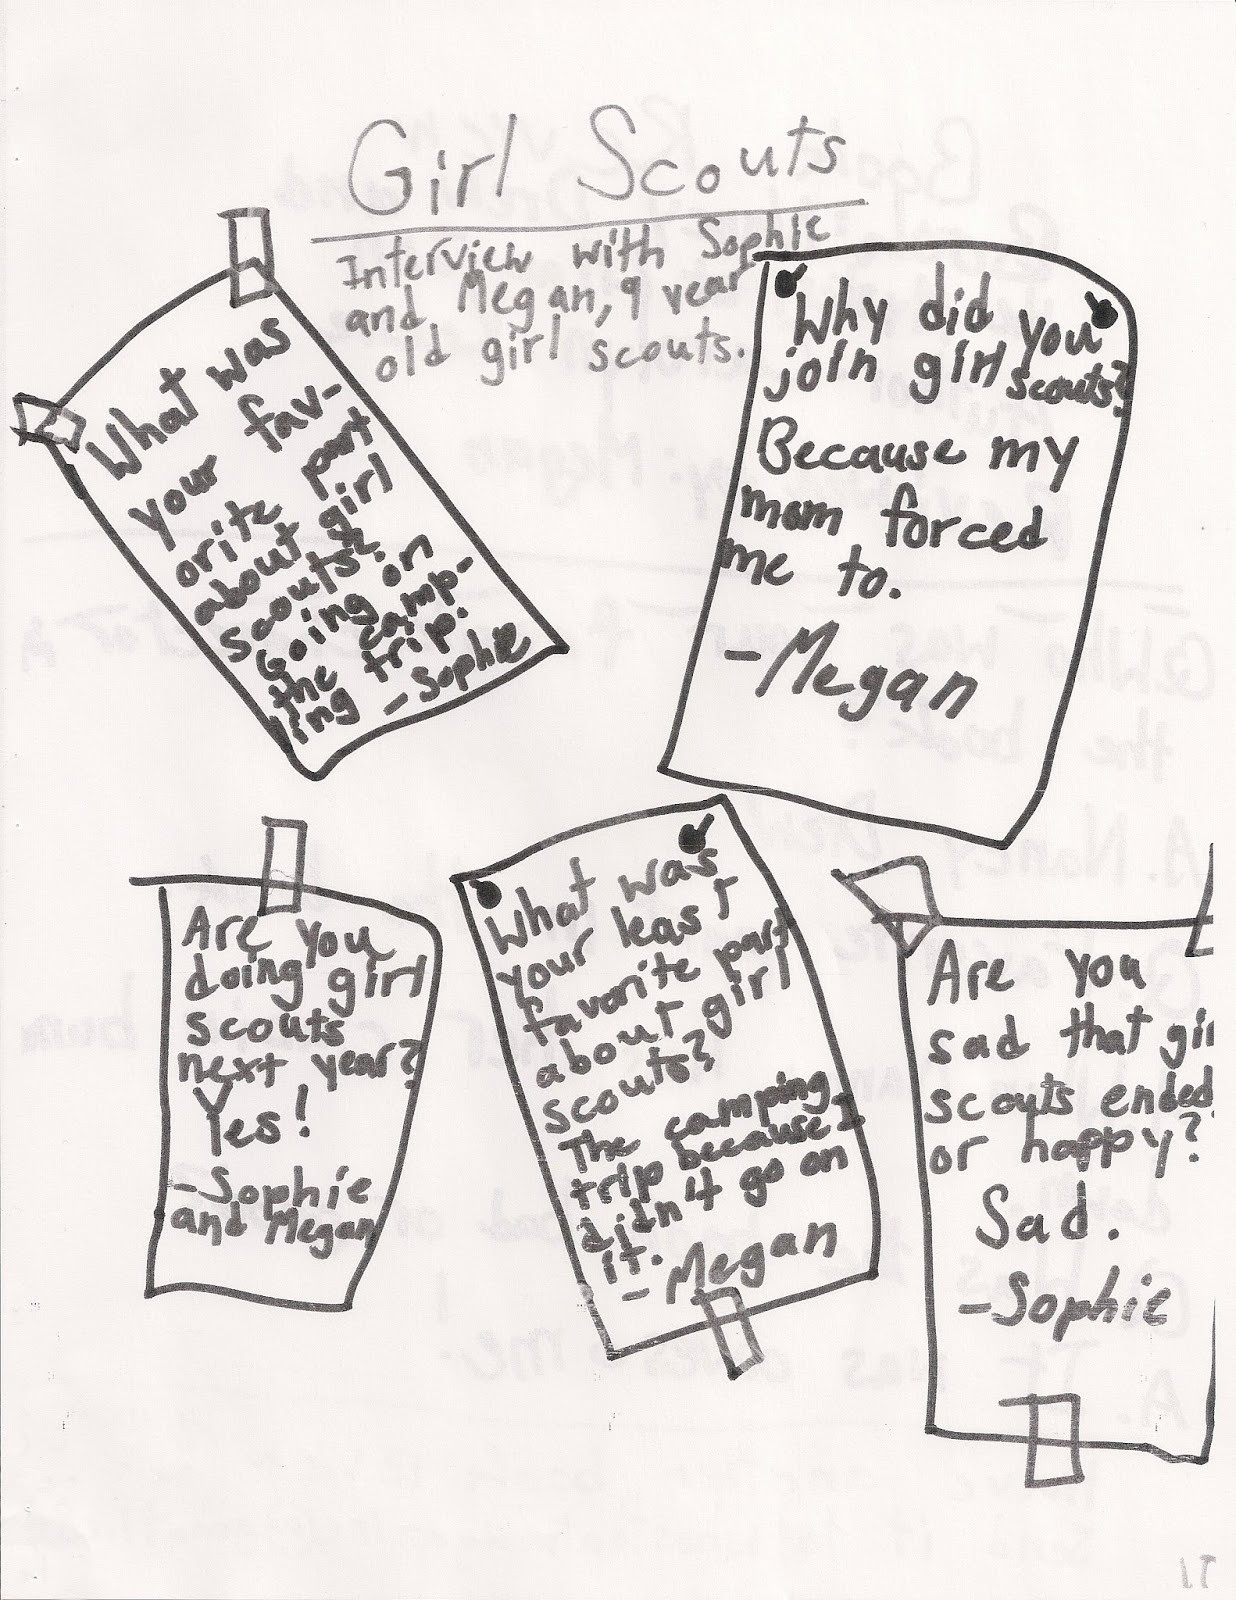 Girl Scouts
Interview with Sophie
and Megan, 9 year
old girl scouts.
What was
your fav-
orite part
about girl
scouts?
Going on
the camp-
ing trip.
-Sophie
Why did you
join girl scouts?
Because my
mom forced
me to.
-Megan
Are you
doing girl
scouts
next year?
Yes!
-Sophie
and Megan
What was
your least
favorite part
about girl
scouts?
The camping
trip because I
didn't go on
it.
-Megan
Are you
sad that girl
scouts ended
or happy?
Sad.
-Sophie